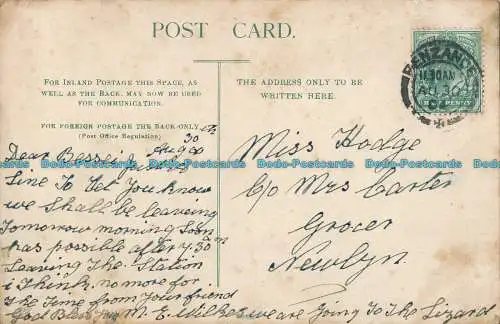 POST CARD.
FOR INLAND POSTAGE THIS SPACE, AS
WELL AS THE BACK, MAY NOW BE USED
FOR COMMUNICATION.
FOR FOREIGN POSTAGE THE BACK ONLY
(Post Office Regulation)
THE ADDRESS ONLY TO BE
WRITTEN HERE.
PENZANCE
11.30AM
AU 30
HALF PENNY
Aug 30th
Dear Bessei Just a
Line To Let You know
we Shall be leaving
Tomorrow morning Soon
has possible after 7.30 am
Leaving The Station
i Think no more for
The Time from Your friend
God Bless M. E. Wilkes we are going To The Lizard
Miss Hodge
C/o Mrs Carter
Grocer
Newlyn
delcampe.net
Done-4-Postcards